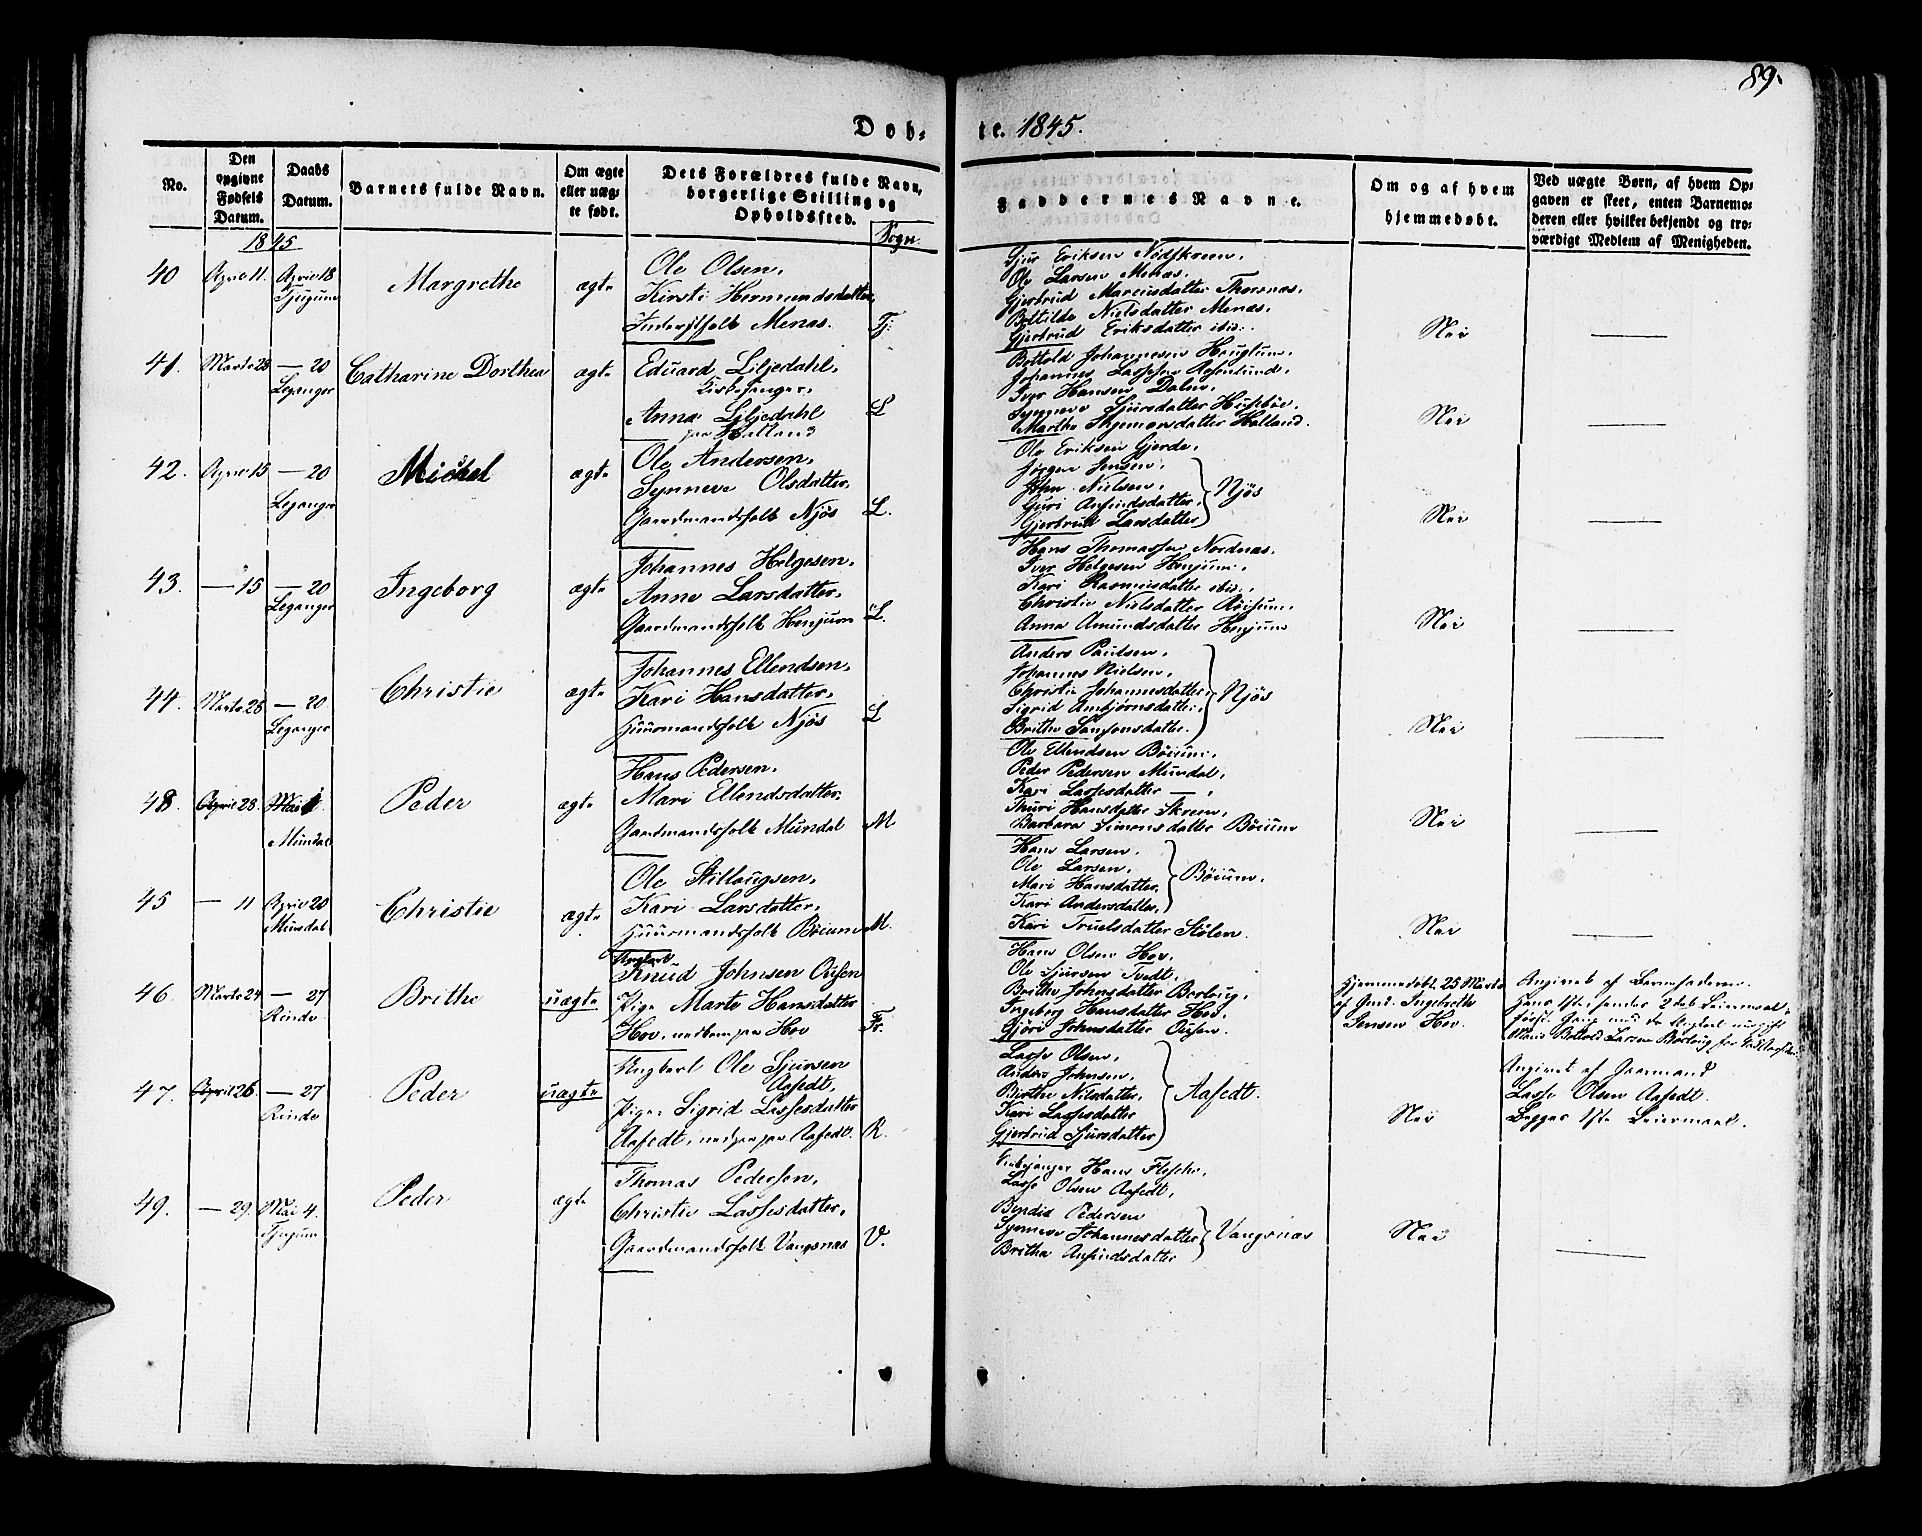 89.
Døb- te. 1845.
No.
Den opgivne Fødsels Datum.
Daabs Datum.
Barnets fulde Navn.
Om ægte eller uægte født.
Dets Forældres fulde Navn, borgerlige Stilling og Opholdssted.
Sogn.
Faddernes Navne.
Om og af hvem hjemmedøbt.
Ved uægte Børn, af hvem Opgaven er skeet, enten Barnemoderen eller hvilket bekjendt og troværdigt Medlem af Menigheden.
1845
40 April 11. April 18 Tjugum Margrethe ægte
Ole Olsen,
Kirsti Hermundsdatter,
Inderstfolk Menæs. Tj.
Gjur Eriksen Nødskreen,
Ole Larsen Menæs.
Gjertrud Marcusdatter Thorsnæs,
Bothilde Nielsdatter Menæs,
Gjertrud Eriksdatter ibid.
Nei
41. Marts 23 — 20 Leganger Catharine Dorthea ægte
Eduard Liljedahl,
Kirkesanger,
Anna Liljedahl
paa Hatland L
Bottold Johannesen Henglum,
Johannes Lassesen
Iver Hansen Dalen,
Synneve Sjursdatter Husebøe.
Marthe Ingemarsdatter Hatland.
Nei
42. April 15 — 20 Leganger Michel ægte
Ole Andersen,
Synneve Olsdatter,
Gaardmandsfolk Njøs L.
Ole Eriksen Gjerde,
Jørgen Jensen,
John Nielsen,
Guri Anfindsdatter,
Gjertrud Larsdatter
Njøs
Nei
43. — 15 — 20 Leganger Ingeborg ægte
Johannes Helgesen,
Anne Larsdatter,
Gaardmandsfolk Henjum L.
Hans Thomassen Nordnæs.
Iver Helgesen Henjum,
Kari Rasmusdatter ibid.,
Christie Nielsdatter Røisum,
Anna Amundsdatter Henjum
Nei
44. Marts 26 — 20 Leganger Christie ægte
Johannes Ellendsen,
Kari Hansdatter,
Huusmandsfolk Njøs L
Anders Paulsen,
Johannes Nielsen,
Christie Johannesdatter,
Sigrid Anbjørnsdatter,
Brithe Samsonsdatter.
Njøs
Nei
48. April 28. Mai 1 Mundal Peder ægte
Hans Pedersen,
Mari Ellendsdatter,
Gaardmandsfolk Mundal M
Ole Ellendsen Bøium,
Peder Pedersen Mundal,
Kari Lassesdatter —,
Thuri Hansdatter Skreen,
Barbara Simonsdatter Bøium
Nei
45 — 11 April 20 Mundal Christie ægte
Ole Stillaugsen,
Kari Larsdatter,
Huusmandsfolk Bøium M.
Hans Larsen,
Ole Larsen,
Mari Hansdatter,
Kari Andersdatter,
Bøium,
Kari Truelsdatter Stølen.
Nei
46. Marts 24 — 27 Rinde Brithe uægte
Ungkarl
Knud Johnsen Ousen
Pige Marte Hansdatter
Hov, nedkom paa Hov Fr.
Hans Olsen Hov,
Ole Sjursen Tvedt,
Brithe Johnsdatter Borlaug,
Ingeborg Hansdatter Hov,
Sjøri Johnsdatter Ousen.
Hjemmedøbt 25 Marts
af Gmd. Ingebrekt
Jensen Hov.
Angivet af Barnefaderen.
Hans 1ste, hendes 2det Leiermaal,
første Gang med
47. April 26 — 27 Rinde Peder uægte
Ungkarl Ole Sjursen
Aafedt,
Pige Sigrid Lassesdatter
Aafedt, nedkom paa Aafedt. R.
Lasse Olsen,
Anders Johnsen,
Birthe Nilsdatter,
Kari Lassesdatter
Gjertrud Sjursdatter
Aafedt.
Nei
Angivet af Gaarmand
Lasse Olsen Aafedt.
Begges 1ste Leiermaal.
49. — 29. Mai 4. Tjugum Peder ægte
Thomas Pedersen,
Christie Lassesdatter,
Gaardmandsfolk Vangsnæs V.
Kirkesanger Hans Flesche,
Lasse Olsen Aafedt,
Bendix Pedersen
Synneve Johannesdatter
Brithe Anfindsdatter
Vangsnæs
Nei